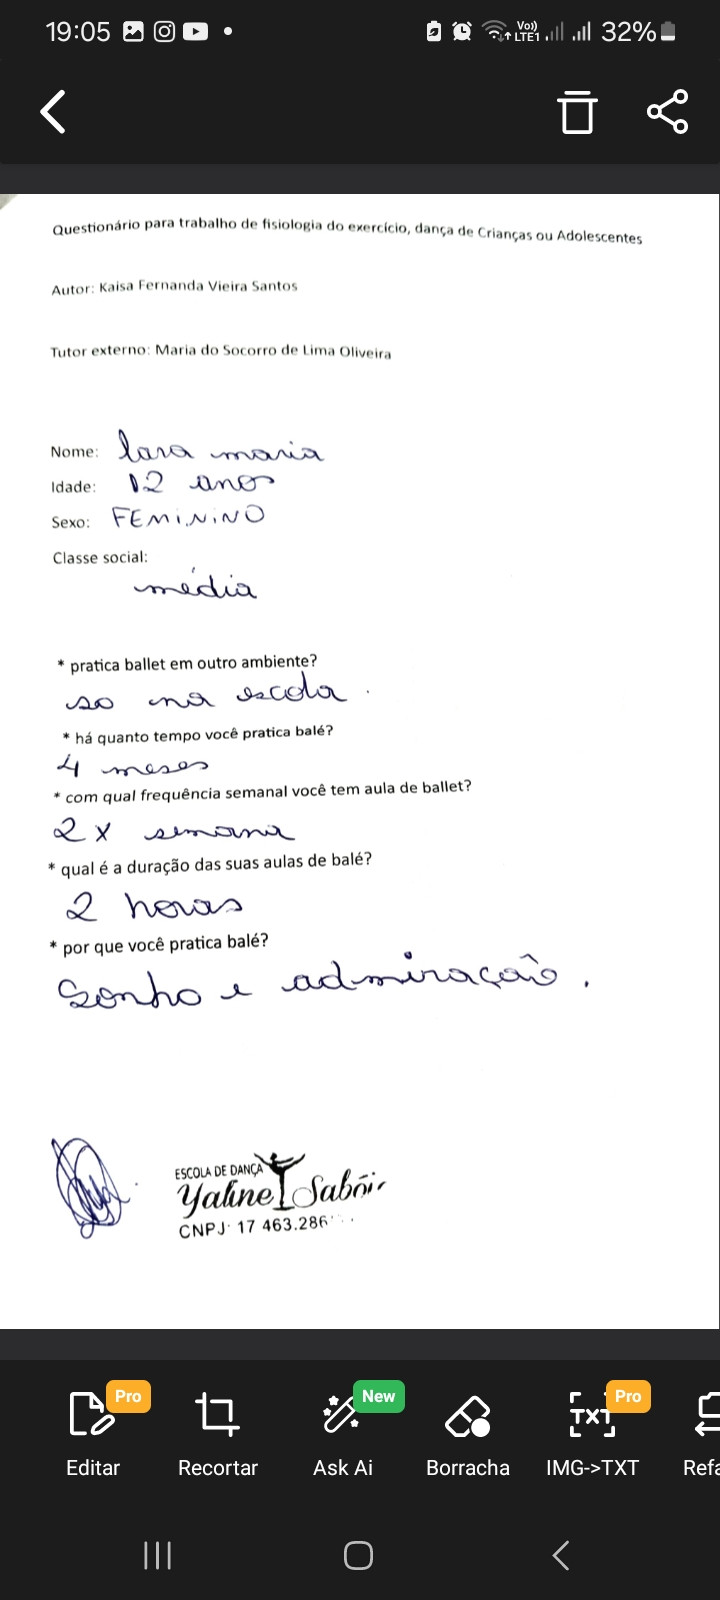 19:05
Vo))
LTE1
32%
Questionário para trabalho de fisiologia do exercício, dança de Crianças ou Adolescentes
Autor: Kaisa Fernanda Vieira Santos
Tutor externo: Maria do Socorro de Lima Oliveira
Nome: lara maria
Idade: 12 anos
Sexo: FEMININO
Classe social:
média
* pratica ballet em outro ambiente?
so na escola.
* há quanto tempo você pratica balé?
4 meses
* com qual frequência semanal você tem aula de ballet?
2x semana
* qual é a duração das suas aulas de balé?
2 horas
* por que você pratica balé?
Sonho e admiração.
ESCOLA DE DANÇA
Yaline
CNPJ: 17 463.286
Pro
New
Pro
Editar
Recortar
Ask Ai
Borracha
TXT
IMG->TXT
Refa